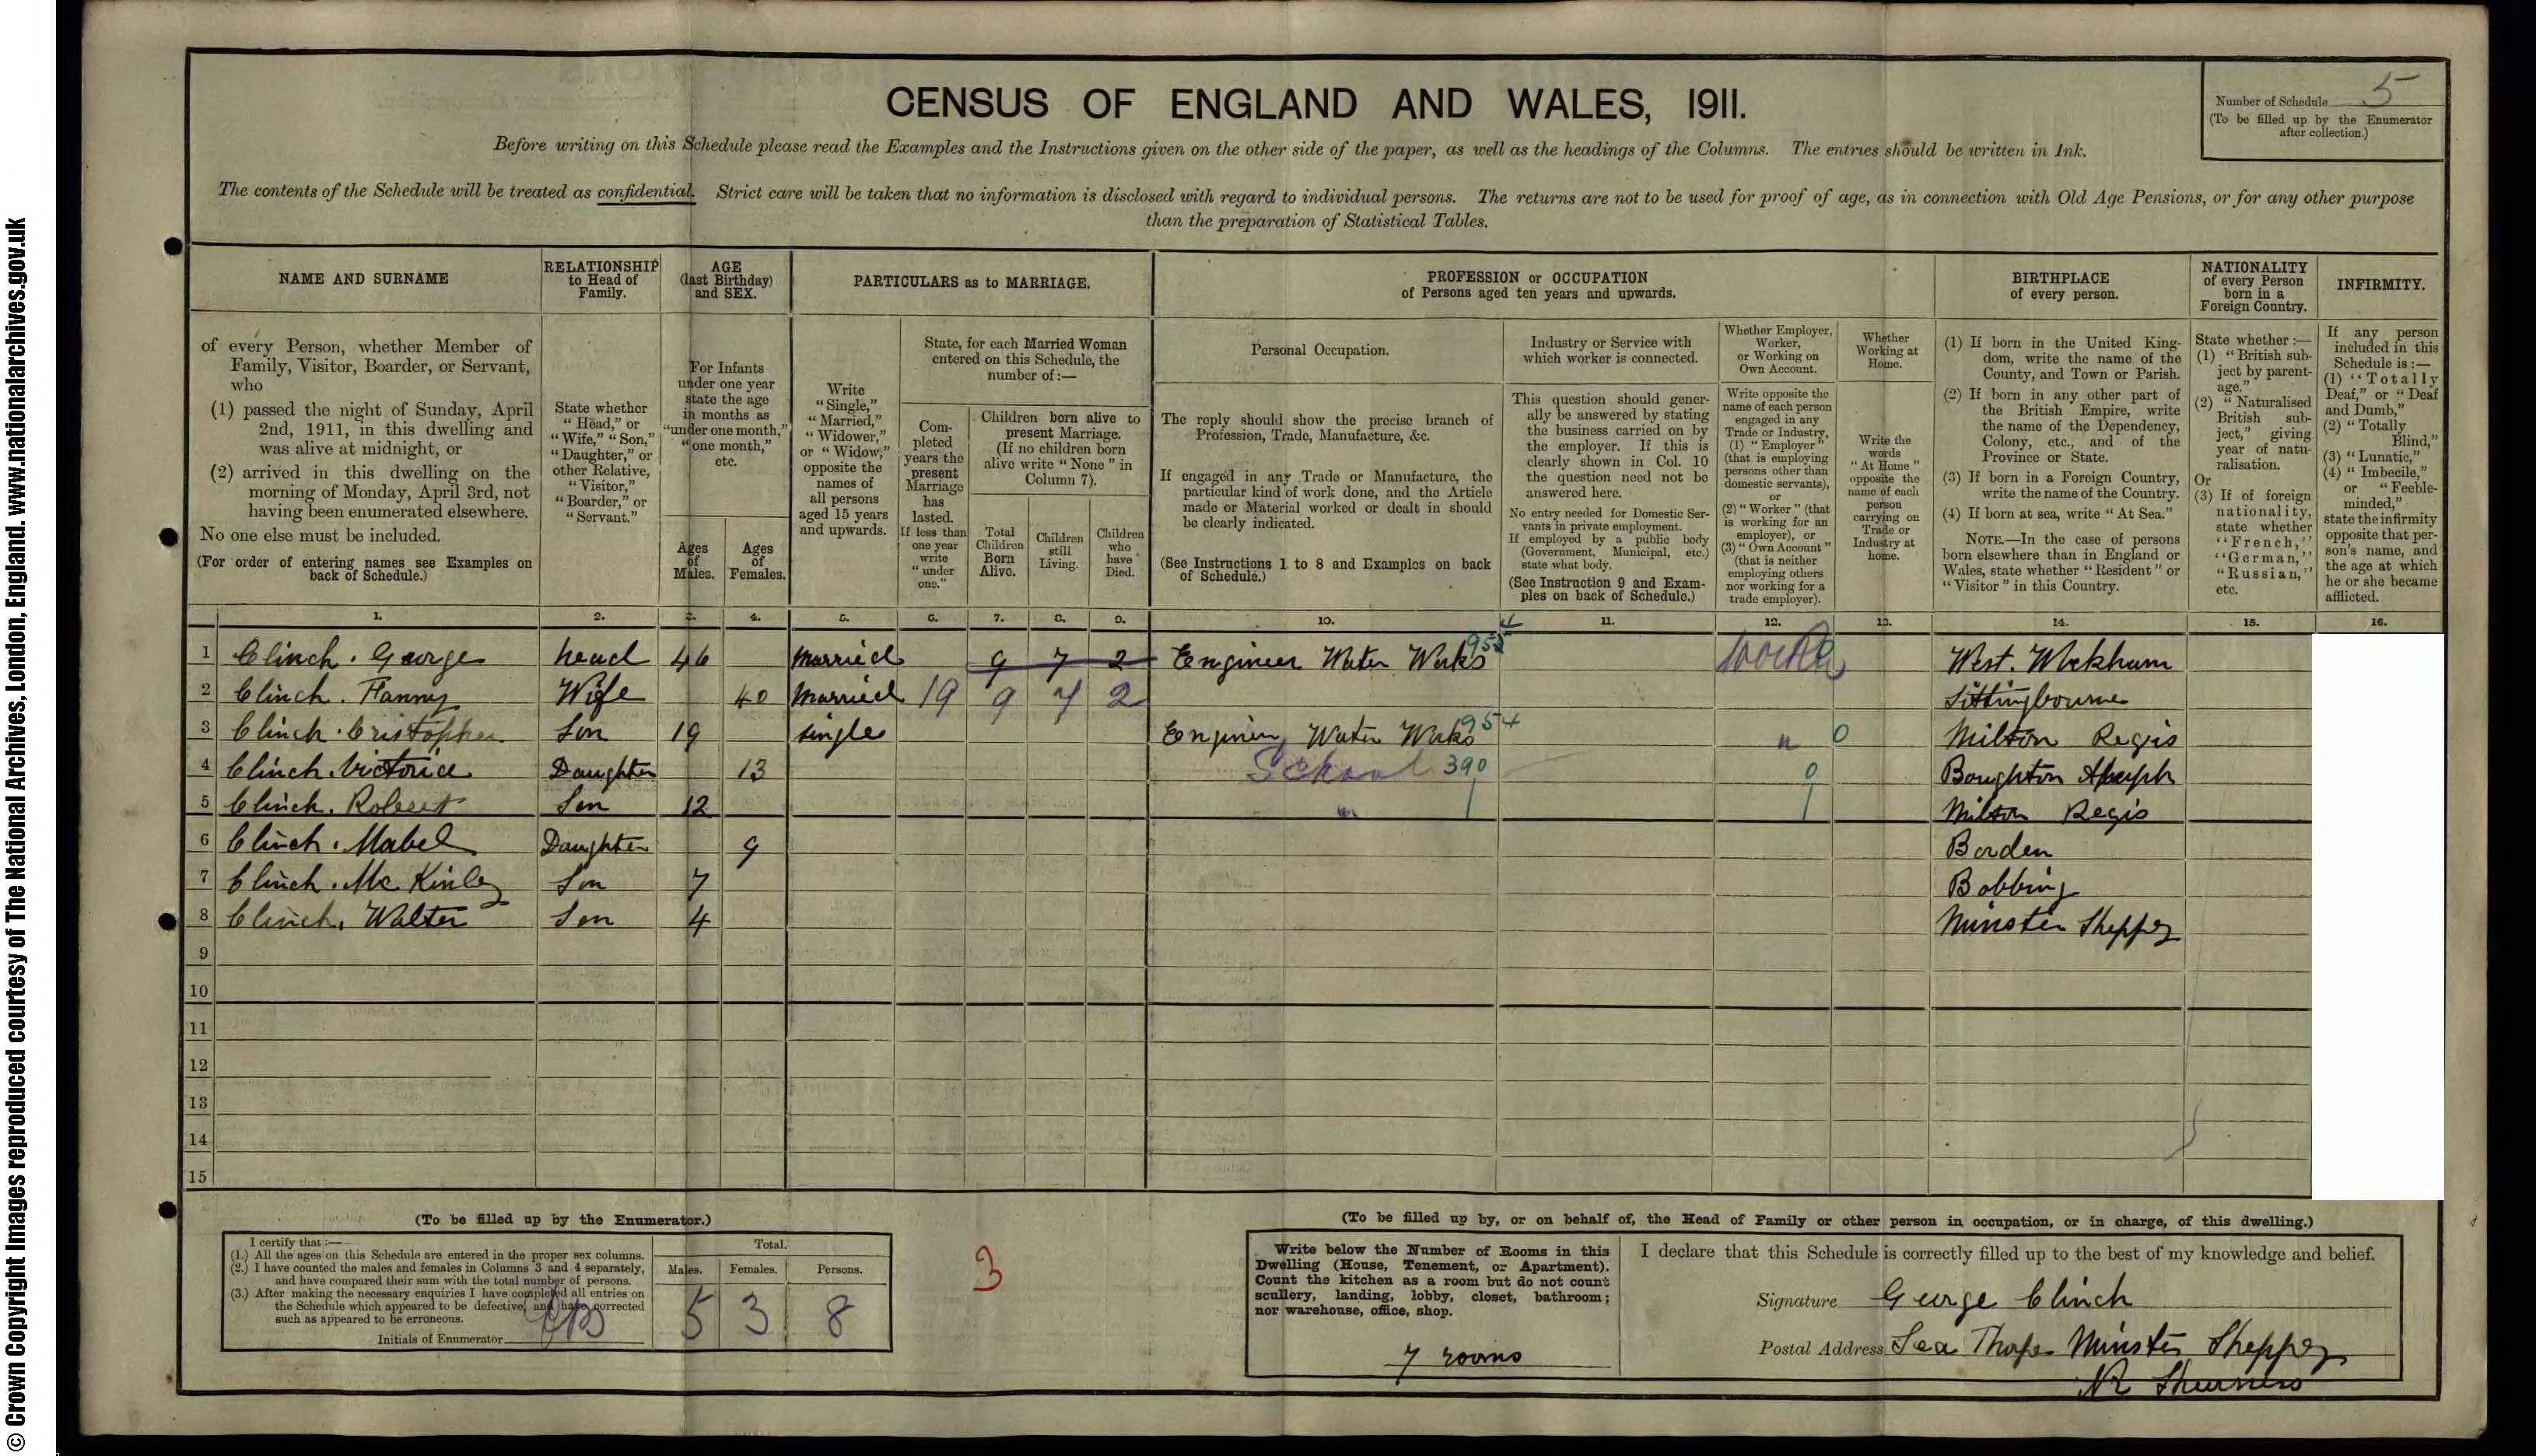 © Crown Copyright Images reproduced courtesy of The National Archives, London, England. www.nationalarchives.gov.uk
CENSUS OF ENGLAND AND WALES, 1911.
Number of Schedule 5
(To be filled up by the Enumerator
after collection.)
Before writing on this Schedule please read the Examples and the Instructions given on the other side of the paper, as well as the headings of the Columns. The entries should be written in Ink.
The contents of the Schedule will be treated as confidential. Strict care will be taken that no information is disclosed with regard to individual persons. The returns are not to be used for proof of age, as in connection with Old Age Pensions, or for any other purpose
than the preparation of Statistical Tables.
NAME AND SURNAME
of every Person, whether Member of
Family, Visitor, Boarder, or Servant,
who
(1) passed the night of Sunday, April
2nd, 1911, in this dwelling and
was alive at midnight, or
(2) arrived in this dwelling on the
morning of Monday, April 3rd, not
having been enumerated elsewhere.
No one else must be included.
(For order of entering names see Examples on
back of Schedule.)
RELATIONSHIP
to Head of
Family.
State whether
"Head," or
"Wife," "Son,"
"Daughter," or
other Relative,
"Visitor,"
"Boarder," or
"Servant."
AGE
(last Birthday)
and SEX.
For Infants
under one year
state the age
in months as
"under one month,"
"one month,"
etc.
Ages
of
Males.
Ages
of
Females.
PARTICULARS as to MARRIAGE.
Write
"Single,"
"Married,"
"Widower,"
or "Widow,"
opposite the
names of
all persons
aged 15 years
and upwards.
State, for each Married Woman
entered on this Schedule, the
number of:—
Com-
pleted
years the
present
Marriage
has
lasted.
If less than
one year
write
"under
one."
Children born alive to
present Marriage.
(If no children born
alive write "None" in
Column 7).
Total
Children
Born
Alive.
Children
still
Living.
Children
who
have
Died.
PROFESSION or OCCUPATION
of Persons aged ten years and upwards.
Personal Occupation.
The reply should show the precise branch of
Profession, Trade, Manufacture, &c.
If engaged in any Trade or Manufacture, the
particular kind of work done, and the Article
made or Material worked or dealt in should
be clearly indicated.
(See Instructions 1 to 8 and Examples on back
of Schedule.)
Industry or Service with
which worker is connected.
This question should gener-
ally be answered by stating
the business carried on by
the employer. If this is
clearly shown in Col. 10
the question need not be
answered here.
No entry needed for Domestic Ser-
vants in private employment.
If employed by a public body
(Government, Municipal, etc.)
state what body.
(See Instruction 9 and Exam-
ples on back of Schedule.)
Whether Employer,
Worker,
or Working on
Own Account.
Write opposite the
name of each person
engaged in any
Trade or Industry,
(1) "Employer"
(that is employing
persons other than
domestic servants),
or
(2) "Worker" (that
is working for an
employer), or
(3) "Own Account"
(that is neither
employing others
nor working for a
trade employer).
Whether
Working at
Home.
Write the
words
"At Home"
opposite the
name of each
person
carrying on
Trade or
Industry at
home.
BIRTHPLACE
of every person.
(1) If born in the United King-
dom, write the name of the
County, and Town or Parish.
(2) If born in any other part of
the British Empire, write
the name of the Dependency,
Colony, etc., and of the
Province or State.
(3) If born in a Foreign Country,
write the name of the Country.
(4) If born at sea, write "At Sea."
NOTE.—In the case of persons
born elsewhere than in England or
Wales, state whether "Resident" or
"Visitor" in this Country.
NATIONALITY
of every Person
born in a
Foreign Country.
State whether :—
(1) "British sub-
ject by parent-
age."
(2) "Naturalised
British sub-
ject," giving
year of natu-
ralisation.
Or
(3) If of foreign
nationality,
state whether
"French,"
"German,"
"Russian,"
etc.
INFIRMITY.
If any person
included in this
Schedule is:—
(1) "Totally
Deaf," or "Deaf
and Dumb,"
(2) "Totally
Blind,"
(3) "Lunatic,"
(4) "Imbecile,"
or "Feeble-
minded,"
state the infirmity
opposite that per-
son's name, and
the age at which
he or she became
afflicted.
1. 2. 3. 4. 5. 6. 7. 8. 9. 10. 11. 12. 13. 14. 15. 16.
1 Clinch. George head 46 Married 9 7 2 Engineer Water Works Worker West. Wickham
2 Clinch. Fanny Wife 40 Married 19 9 7 2 Sittingbourne
3 Clinch. Cristopher Son 19 single Engineer Water Works 954 " 0 Milton Regis
4 Clinch. Victoria Daughter 13 School 390 0 Boughton
5 Clinch. Robert Son 12 " Milton Regis
6 Clinch. Mabel Daughter 9 Borden
7 Clinch. Mc Kinley Son 7 Bobbing
8 Clinch. Walter Son 4 Minster Sheppey
9
10
11
12
13
14
15
(To be filled up by the Enumerator.)
I certify that:—
(1.) All the ages on this Schedule are entered in the proper sex columns.
(2.) I have counted the males and females in Columns 3 and 4 separately,
and have compared their sum with the total number of persons.
(3.) After making the necessary enquiries I have completed all entries on
the Schedule which appeared to be defective, and have corrected
such as appeared to be erroneous.
Initials of Enumerator
Total.
Males. Females. Persons.
5 3 8
3
(To be filled up by, or on behalf of, the Head of Family or other person in occupation, or in charge, of this dwelling.)
Write below the Number of Rooms in this
Dwelling (House, Tenement, or Apartment).
Count the kitchen as a room but do not count
scullery, landing, lobby, closet, bathroom;
nor warehouse, office, shop.
7 rooms
I declare that this Schedule is correctly filled up to the best of my knowledge and belief.
Signature George Clinch
Postal Address Sea Thorpe Minster Sheppey
Nr Sheerness